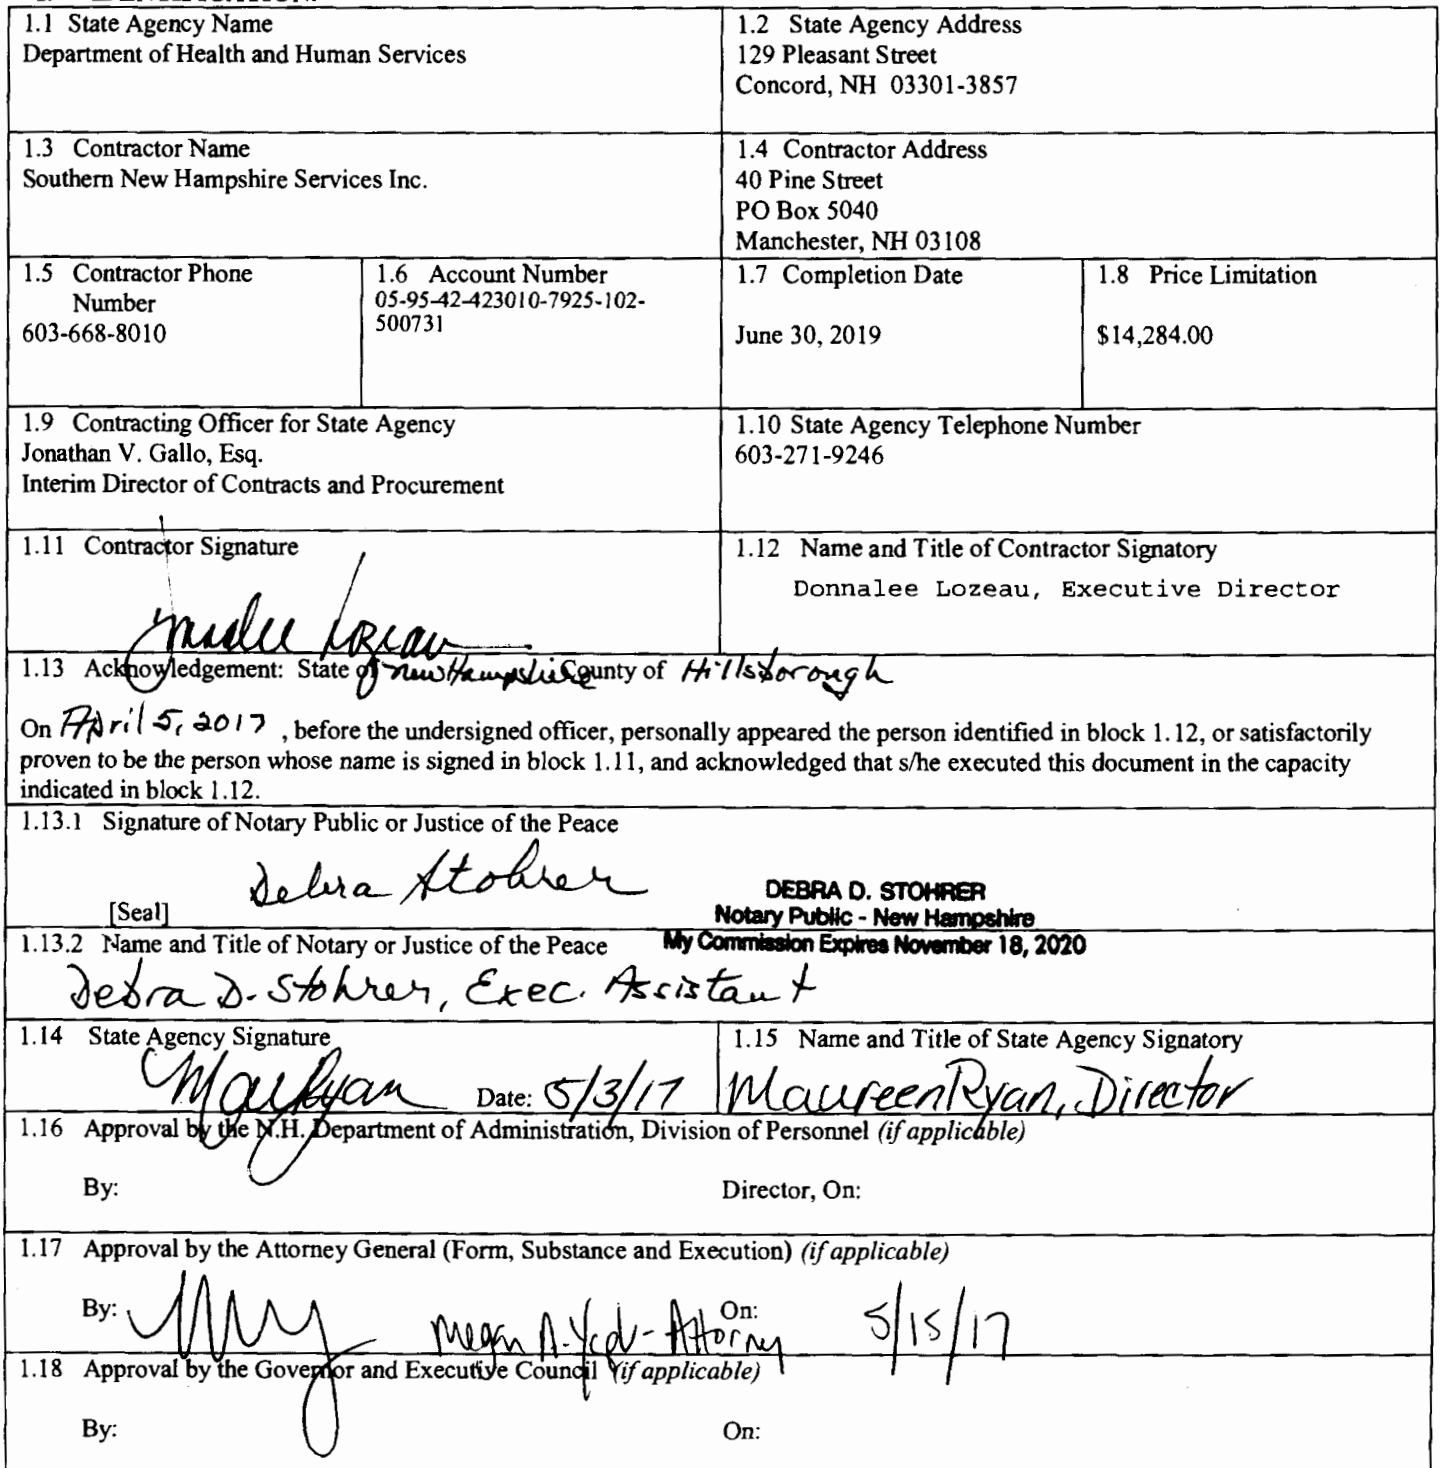 1.1 State Agency Name
Department of Health and Human Services
1.2 State Agency Address
129 Pleasant Street
Concord, NH 03301-3857
1.3 Contractor Name
Southern New Hampshire Services Inc.
1.4 Contractor Address
40 Pine Street
PO Box 5040
Manchester, NH 03108
1.5 Contractor Phone
Number
603-668-8010
1.6 Account Number
05-95-42-423010-7925-102-
500731
1.7 Completion Date
June 30, 2019
1.8 Price Limitation
$14,284.00
1.9 Contracting Officer for State Agency
Jonathan V. Gallo, Esq.
Interim Director of Contracts and Procurement
1.10 State Agency Telephone Number
603-271-9246
1.11 Contractor Signature
1.12 Name and Title of Contractor Signatory
Donnalee Lozeau, Executive Director
1.13 Acknowledgement: State of New Hampshire County of Hillsborough
On April 5, 2017 , before the undersigned officer, personally appeared the person identified in block 1.12, or satisfactorily
proven to be the person whose name is signed in block 1.11, and acknowledged that s/he executed this document in the capacity
indicated in block 1.12.
1.13.1 Signature of Notary Public or Justice of the Peace
Debra Stohrer
[Seal]
DEBRA D. STOHRER
Notary Public - New Hampshire
My Commission Expires November 18, 2020
1.13.2 Name and Title of Notary or Justice of the Peace
Debra D. Stohrer, Exec. Assistant
1.14 State Agency Signature
Date: 5/3/17
1.15 Name and Title of State Agency Signatory
Maureen Ryan, Director
1.16 Approval by the N.H. Department of Administration, Division of Personnel (if applicable)
By:
Director, On:
1.17 Approval by the Attorney General (Form, Substance and Execution) (if applicable)
By: Megan A. - Attorney On: 5/15/17
1.18 Approval by the Governor and Executive Council (if applicable)
By:
On: